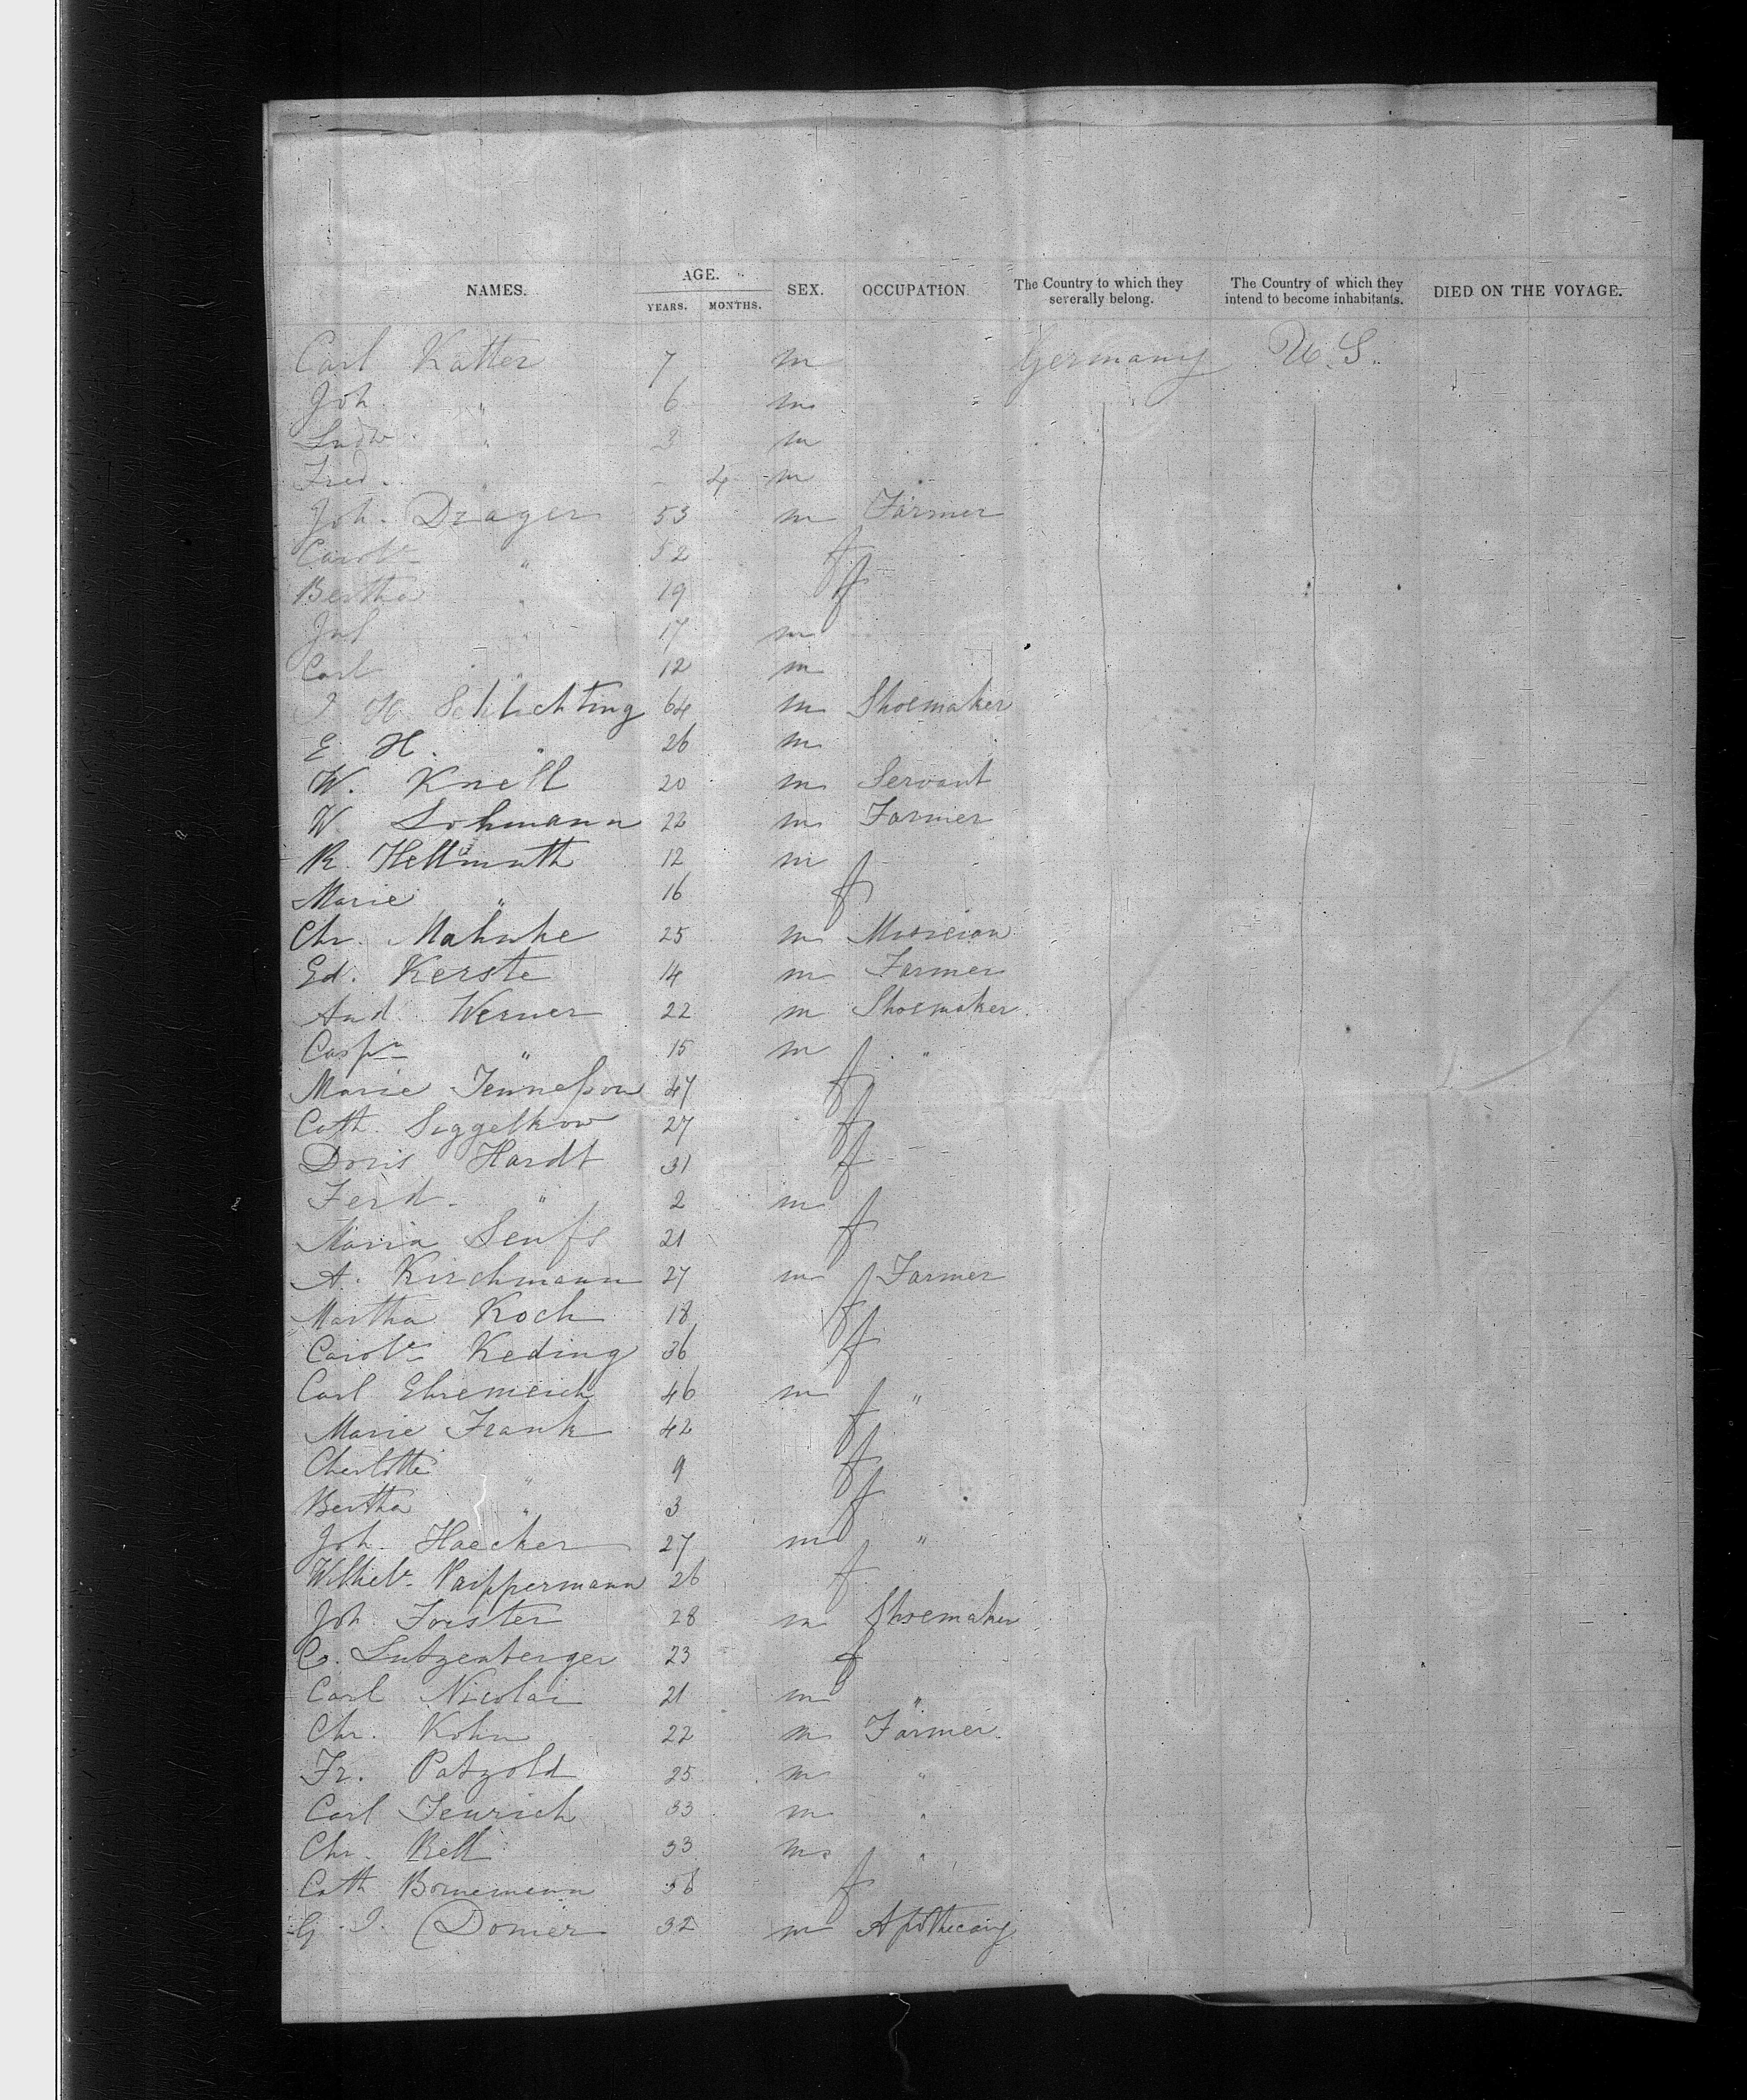 NAMES. AGE. YEARS. MONTHS. SEX. OCCUPATION The Country to which they severally belong. The Country of which they intend to become inhabitants. DIED ON THE VOYAGE.
Carl Katter 7 m Germany U.S.
Joh. " 6 m
Ludw. " 3 m
Fred. " - 4 m
Joh. Drager 53 m Farmer
Carole " 52 f
Bertha " 19 f
Jul " 17 m
Carl " 12 m
J. H. Schlichting 64 m Shoemaker
E. H. " 26 m
W. Knell 20 m Servant
W. Lohmann 22 m Farmer
R. Hellmuth 12 m
Marie " 16 f
Chr. Mahnke 25 m Musician
Ed. Kerste 14 m Farmer
And. Werner 22 m Shoemaker
Caspr " 15 m "
Marie 47 f
Cath. Suggelkow 27 f
Doris Hardt 31 f
Ferd. " 2 m
Maria 21 f
A. Kirchmann 27 m Farmer
Martha Koch 18 f
Carole Keding 36 f
Carl 46 m "
Marie Frank 42 f
Charlotte " 9 f
Bertha " 3 f
Joh. Haecker 27 m "
26 f
Joh. Forster 28 m Shoemaker
C. Lutzenberger 23 f
Carl Nicolai 21 m "
Chr. Kohn 22 m Farmer
Fr. Patzold 25 m "
Carl Jenrich 33 m "
Chr. Rell 33 m "
Cath Bornemann 56 f
G. J. Domer 32 m Apothecary